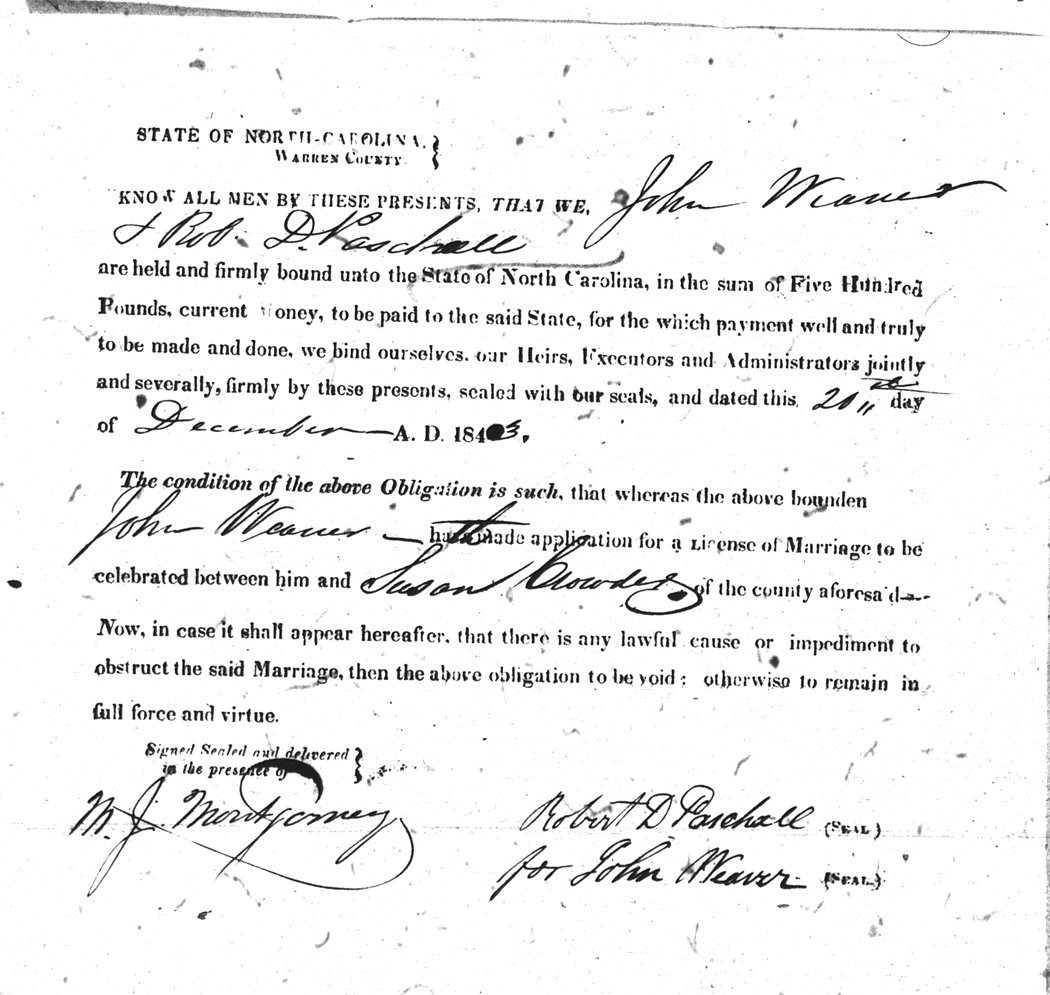 STATE OF NORTH-CAROLINA, }
WARREN COUNTY. }
KNOW ALL MEN BY THESE PRESENTS, THAT WE, John Weaver
& Rob. D. Paschall
are held and firmly bound unto the State of North Carolina, in the sum of Five Hundred
Pounds, current money, to be paid to the said State, for the which payment well and truly
to be made and done, we bind ourselves, our Heirs, Executors and Administrators jointly
and severally, firmly by these presents, sealed with our seals, and dated this 20th day
of December A. D. 1843.
The condition of the above Obligation is such, that whereas the above bounden
John Weaver hath made application for a License of Marriage to be
celebrated between him and Susan Crowder of the county aforesaid
Now, in case it shall appear hereafter, that there is any lawful cause or impediment to
obstruct the said Marriage, then the above obligation to be void; otherwise to remain in
full force and virtue.
Signed Sealed and delivered }
in the presence of }
M. J. Montgomery
Robert D Paschall (SEAL)
for John Weaver (SEAL)